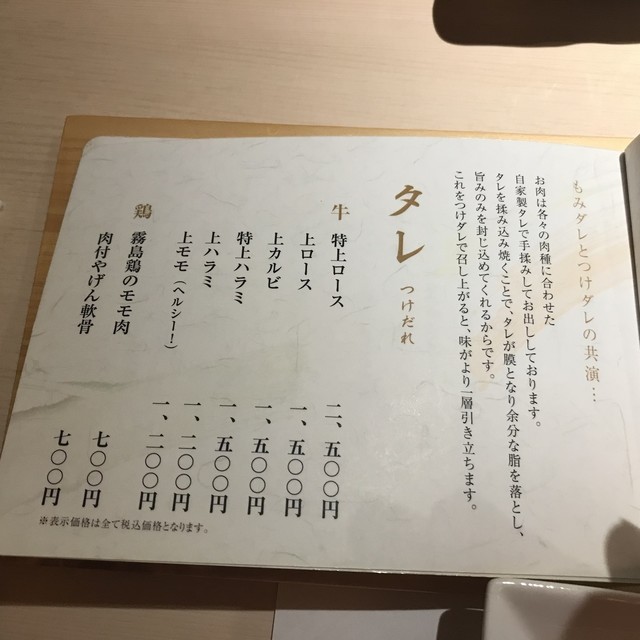 もみダレとつけダレの共演…
お肉は各々の肉種に合わせた
自家製タレで手揉みしてお出ししております。
タレを揉み込み焼くことで、タレが膜となり余分な脂を落とし、
旨みのみを封じ込めてくれるからです。
これをつけダレで召し上がると、味がより一層引き立ちます。
タレ つけだれ
牛 特上ロース 二、五〇〇円
上ロース 一、五〇〇円
上カルビ 一、五〇〇円
特上ハラミ 一、五〇〇円
上ハラミ 一、二〇〇円
上モモ（ヘルシー！） 一、二〇〇円
鶏 霧島鶏のモモ肉 七〇〇円
肉付やげん軟骨 七〇〇円
※表示価格は全て税込価格となります。